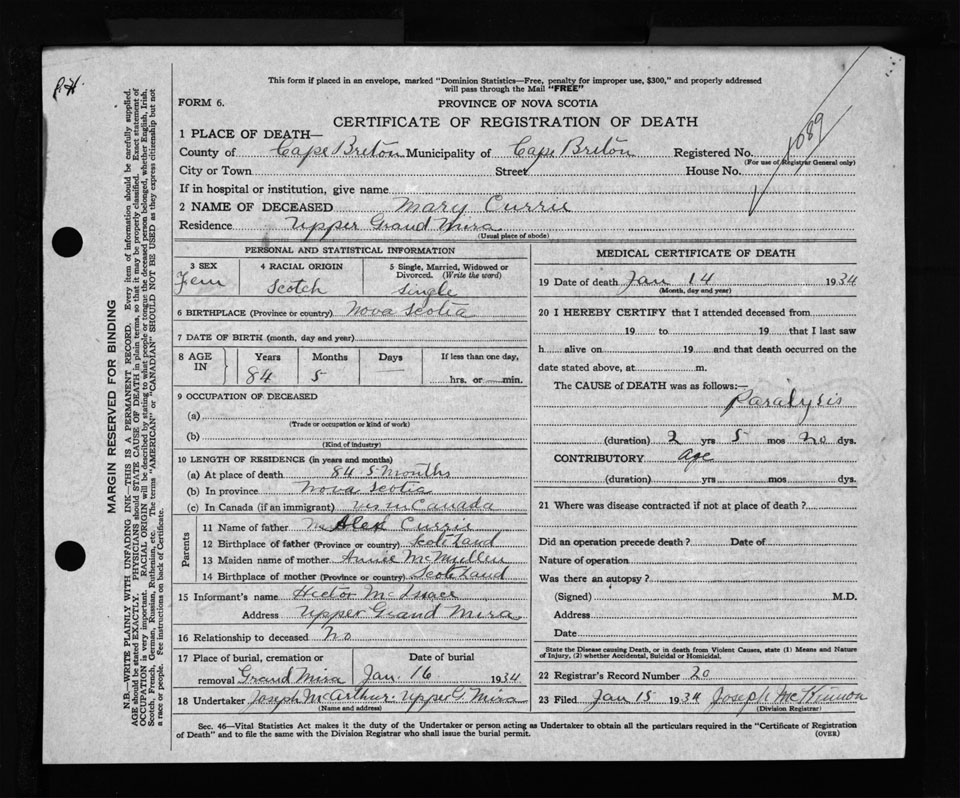 P.H.
This form if placed in an envelope, marked "Dominion Statistics—Free, penalty for improper use, $300," and properly addressed
will pass through the Mail "FREE"
FORM 6.
PROVINCE OF NOVA SCOTIA
CERTIFICATE OF REGISTRATION OF DEATH
1089
1 PLACE OF DEATH—
County of Cape Breton Municipality of Cape Breton Registered No.
(For use of Registrar General only)
City or Town Street House No.
If in hospital or institution, give name
2 NAME OF DECEASED Mary Currie
Residence Upper Grand Mira
(Usual place of abode)
PERSONAL AND STATISTICAL INFORMATION
3 SEX 4 RACIAL ORIGIN 5 Single, Married, Widowed or
Divorced. (Write the word)
Fem Scotch Single
6 BIRTHPLACE (Province or country) Nova Scotia
7 DATE OF BIRTH (month, day and year)
8 AGE IN Years Months Days If less than one day,
84 5 hrs. or min.
9 OCCUPATION OF DECEASED
(a)
(Trade or occupation or kind of work)
(b)
(Kind of industry)
10 LENGTH OF RESIDENCE (in years and months)
(a) At place of death 84 5 Months
(b) In province Nova Scotia
(c) In Canada (if an immigrant) in Canada
Parents
11 Name of father Alex Currie
12 Birthplace of father (Province or country) Scotland
13 Maiden name of mother Annie McMullin
14 Birthplace of mother (Province or country) Scotland
15 Informant's name Hector McIsaac
Address Upper Grand Mira
16 Relationship to deceased No
17 Place of burial, cremation or Date of burial
removal Grand Mira Jan. 16 1934
18 Undertaker Joseph McArthur Upper G. Mira
(Name and address)
MEDICAL CERTIFICATE OF DEATH
19 Date of death Jan 14 1934
(Month, day and year)
20 I HEREBY CERTIFY that I attended deceased from
19 to 19 that I last saw
h alive on 19 and that death occurred on the
date stated above, at m.
The CAUSE of DEATH was as follows:—
Paralysis
(duration) 2 yrs 5 mos no dys.
CONTRIBUTORY age
(duration) yrs mos dys.
21 Where was disease contracted if not at place of death?
Did an operation precede death? Date of
Nature of operation
Was there an autopsy?
(Signed) M.D.
Address
Date
State the Disease causing Death, or in death from Violent Causes, state (1) Means and Nature
of Injury, (2) whether Accidental, Suicidal or Homicidal.
22 Registrar's Record Number 20
23 Filed Jan 15 1934 Joseph McKinnon
(Division Registrar)
Sec. 46—Vital Statistics Act makes it the duty of the Undertaker or person acting as Undertaker to obtain all the particulars required in the "Certificate of Registration
of Death" and to file the same with the Division Registrar who shall issue the burial permit.
(OVER)
MARGIN RESERVED FOR BINDING
N.B.—WRITE PLAINLY WITH UNFADING INK—THIS IS A PERMANENT RECORD. Every item of information should be carefully supplied.
AGE should be stated EXACTLY. PHYSICIANS should STATE CAUSE OF DEATH in plain terms, so that it may be properly classified. Exact statement of
OCCUPATION is very important. RACIAL ORIGIN will be described by stating to what people or tongue the deceased person belonged, whether English, Irish,
Scotch, French, German, Russian, Ruthenian, etc. The terms "AMERICAN" or "CANADIAN" SHOULD NOT BE USED as they express citizenship but not
a race or people. See instructions on back of Certificate.